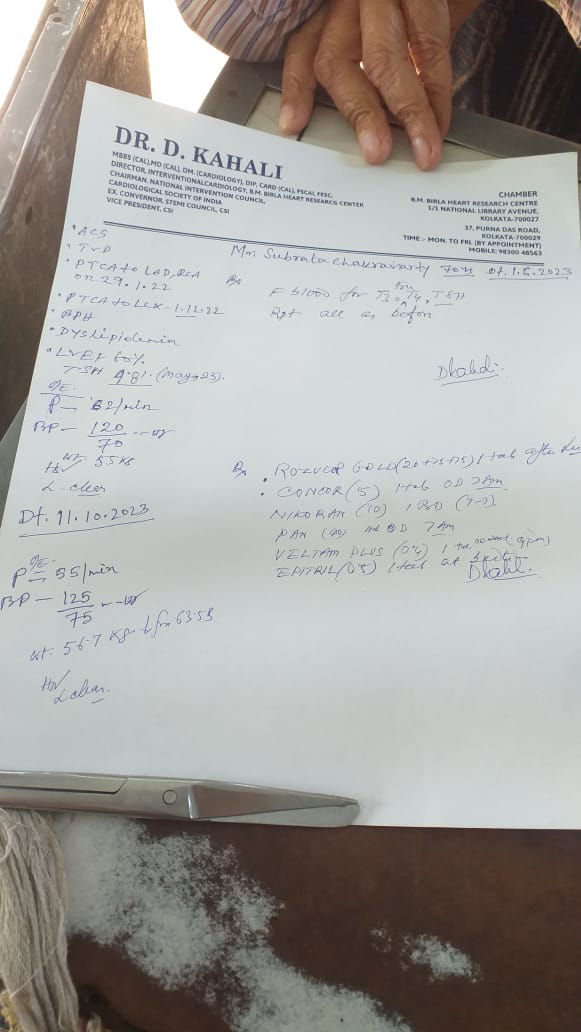 DR. D. KAHALI
MBBS (CAL), MD (CAL), DM, (CARDIOLOGY), DIP, CARD (CAL), FSCAI, FESC,
DIRECTOR, INTERVENTIONALCARDIOLOGY, B.M. BIRLA HEART RESEARCG CENTER
CHAIRMAN, NATIONAL INTERVENTION COUNCIL,
CARDIOLOGICAL SOCIETY OF INDIA
EX. CONVERNOR, STEMI COUNCIL, CSI
VICE PRESIDENT, CSI
CHAMBER
B.M. BIRLA HEART RESEARCH CENTRE
1/1 NATIONAL LIBRARY AVENUE,
KOLKATA-700027
37, PURNA DAS ROAD,
KOLKATA-700029
TIME :- MON. TO FRI. (BY APPOINTMENT)
MOBILE: 98300 48563
Mr Subrata Chakravarty 70 Dt. 1.6.2023
• ACS
• TVD
• PTCA to LAD, RCA
on 29.1.22
• PTCA to LCX - 1.12.22
• BPH
• Dyslipidemia
• LVEF 60%
TSH 9.81 (May-23).
O/E
P - 62/min
BP - 120/70
wt. 55 Kg
L-clear
Rx
for T3, T4, TSH
Rpt all as before
Dt. 11.10.2023
O/E
P - 55/min
BP - 125/75
wt. 56.7 Kg
L clear.
Rx
• ROZUCOR GOLD (20+75+75) 1 tab after
• CONCOR (5) 1 tab OD 7am
NIKORAN (10) 1 BD
PAN (40) BD 7am
VELTAM PLUS (0.4) 1 tab
EPITRIL (0.5) 1 tab at bedtime